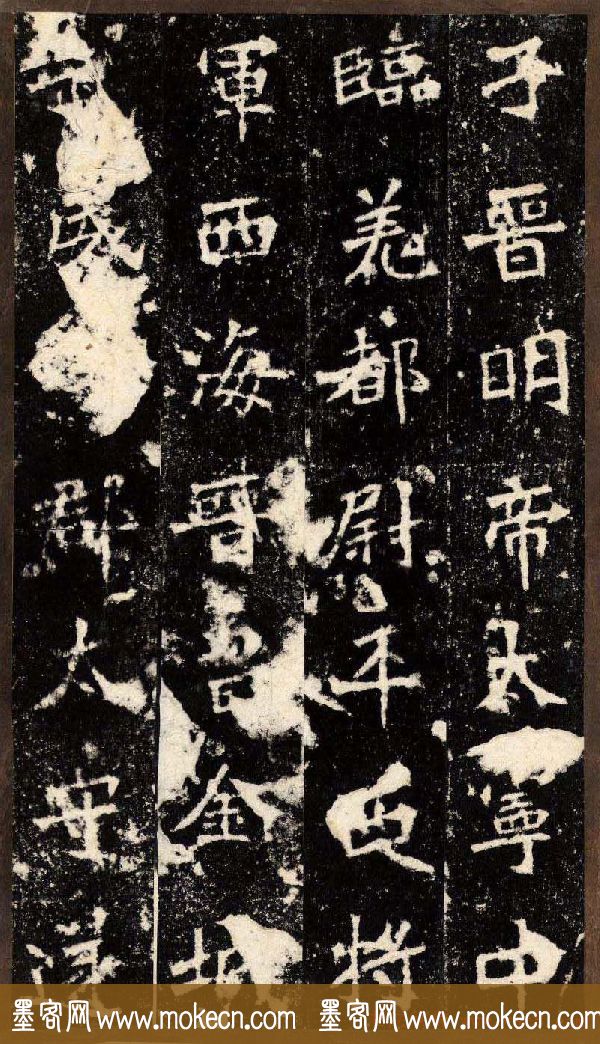 子晉明帝太寧中
臨羌都尉平西將
軍西海晉昌金城
武威郡太守
墨客网 www.mokecn.com 墨客网 www.mokecn.com